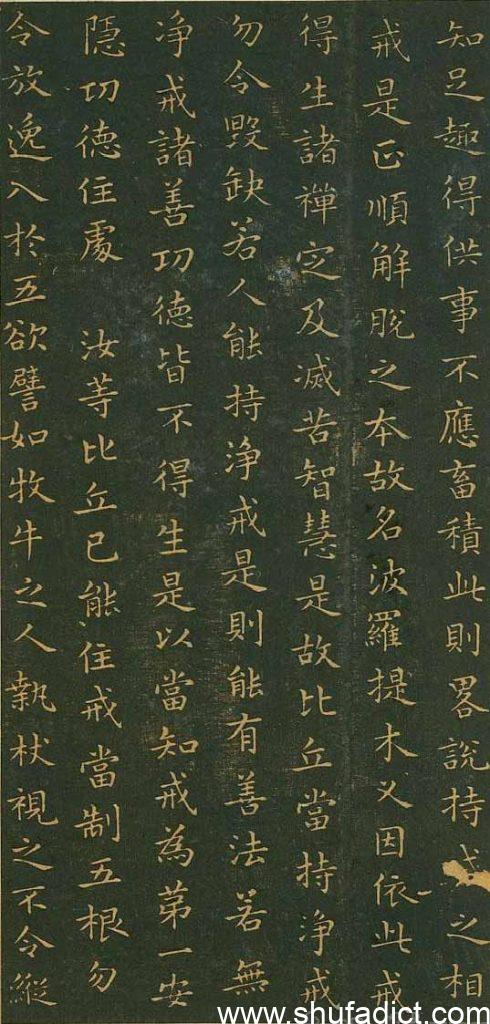 知足趣得供事不應畜積此則畧說持戒之相
戒是正順解脫之本故名波羅提木义因依此戒
得生諸禪定及滅苦智慧是故比丘當持淨戒
勿令毀缺若人能持淨戒是則能有善法若無
淨戒諸善功德皆不得生是以當知戒為苐一安
隱功德住處 汝等比丘已能住戒當制五根勿
令放逸入於五欲譬如牧牛之人執杖視之不令縱
www.shufadict.com